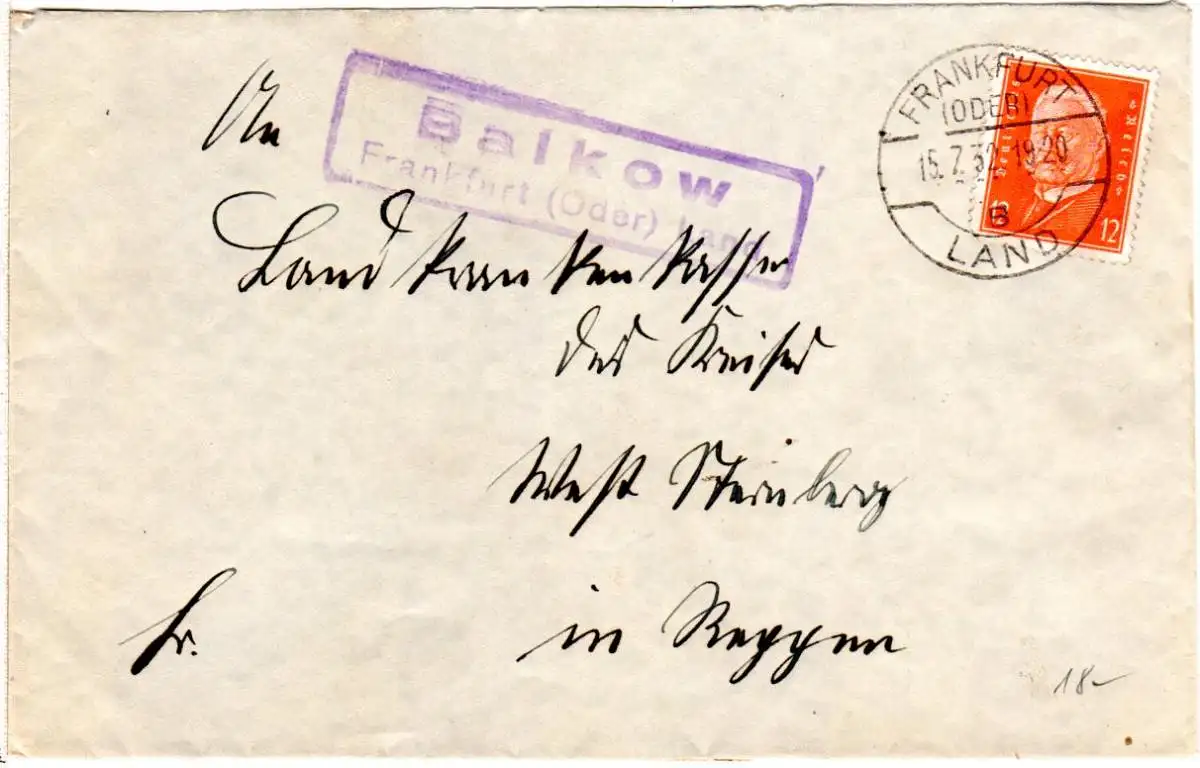 An
Balkow
Frankfurt (Oder) Land
FRANKFURT
(ODER)
15.7.32.19-20
B
LAND
Deutsches Reich
12 12
Landkrankenkasse
des Kreises
West Sternberg
fr. in Reppen
18-